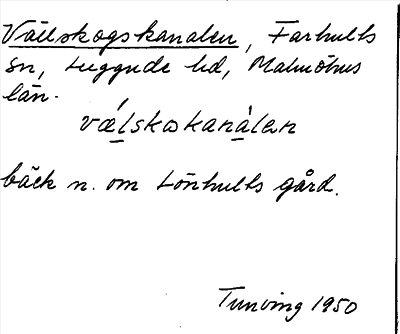 Välskogskanalen, Farhults
sn, Luggude hd, Malmöhus
län.
vælskoskanàlen
bäck n. om Lönhults gård.
Tunving 1950